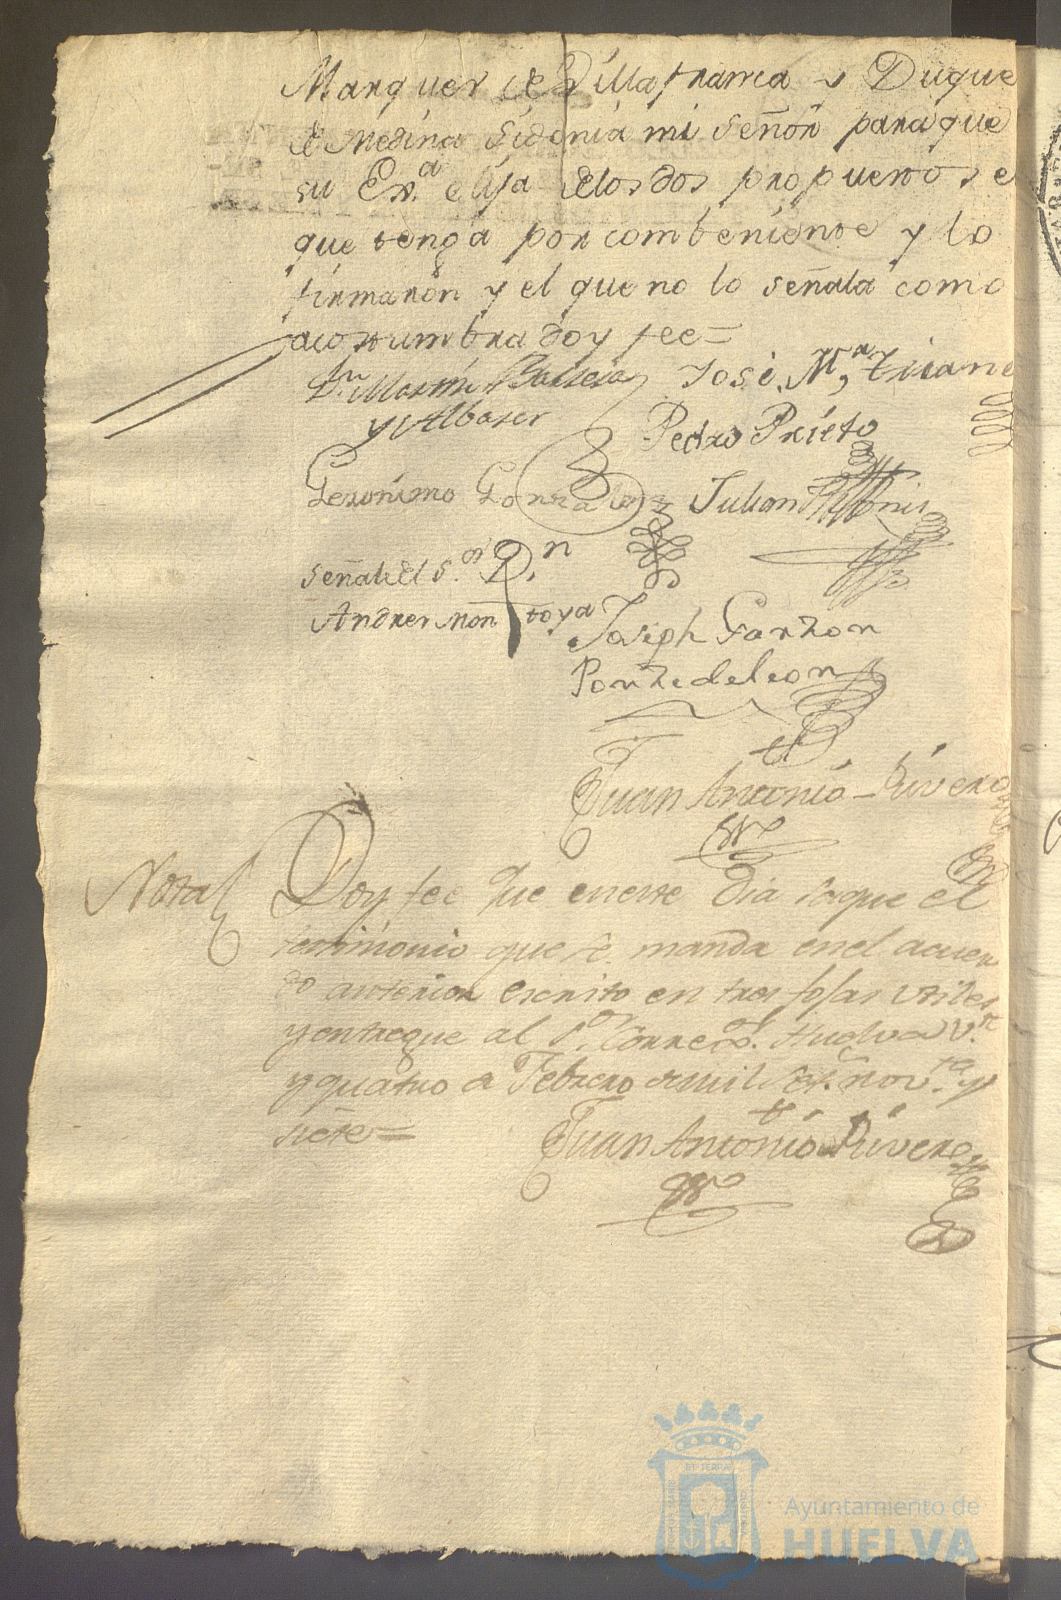 Marques de Villafranca y Duque
de Medina Sidonia mi señor para que
su Exa. elija delos dos propuestos e
que tenga por combeniente y lo
firmaron y el que no lo señala como
acostumbra doy fee=
Dn. Martin Barrera José Ma.
y Albaser
Pedro Prieto
Geronimo Gonzalez Julian
señal del Sor. Dn.
Andres Montoya
Joseph Garzon
Ponze de leon
Juan Antonio Rivero
Nota Doy fee que eneste Dia saque el
testimonio que se manda enel acuer
do anterior escrito en tres fojas utiles
y entregue al Sor. Corredor. Huelva Vte.
y quatro de Febrero de mil Set. novta. y
siete=
Juan Antonio Rivero
Ayuntamiento de
HUELVA